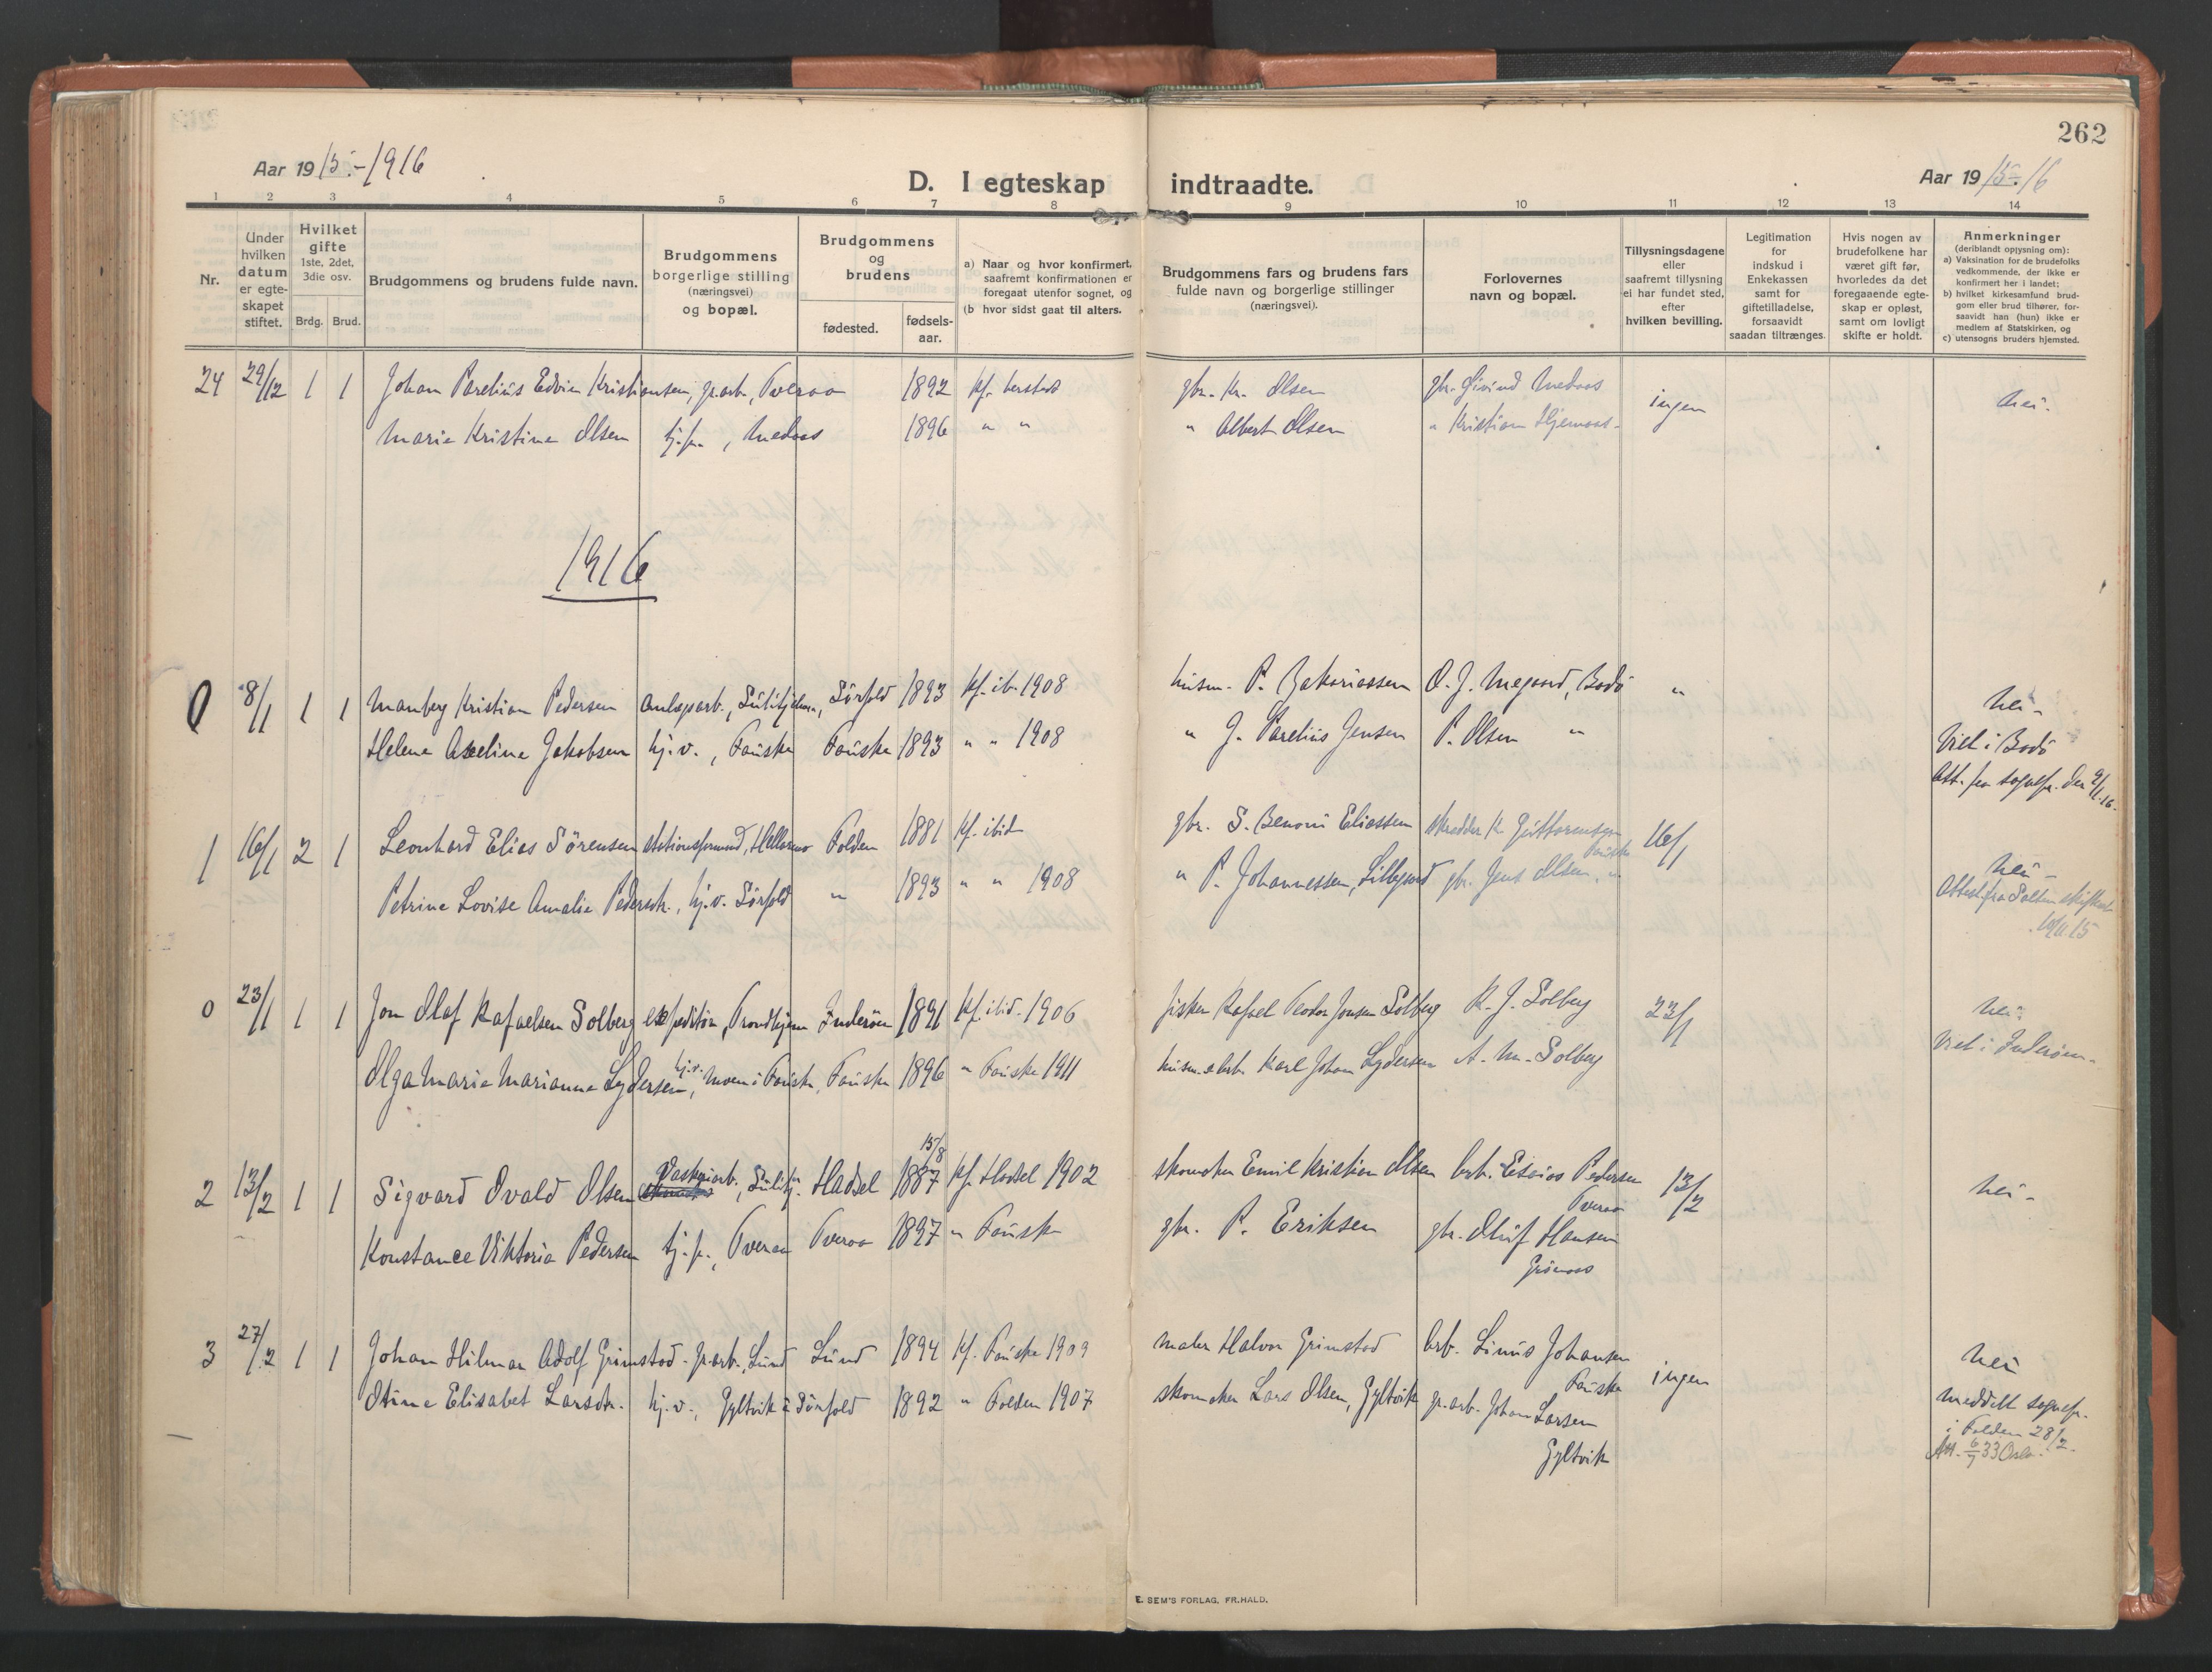 262
Aar 1915.-1916
D. I egteskap indtraadte.
Aar 1915.-16
1 2 3 4 5 6 7 8 9 10 11 12 13 14
Nr.
Under hvilken datum er egte-skapet stiftet.
Hvilket gifte 1ste, 2det, 3die osv.
Brdg. Brud.
Brudgommens og brudens fulde navn.
Brudgommens borgerlige stilling (næringsvei) og bopæl.
Brudgommens og brudens
fødested.
fødsels-aar.
a) Naar og hvor konfirmert, saafremt konfirmationen er foregaat utenfor sognet, og (b hvor sidst gaat til alters.
Brudgommens fars og brudens fars fulde navn og borgerlige stillinger (næringsvei).
Forlovernes navn og bopæl.
Tillysningsdagene eller saafremt tillysning ei har fundet sted, efter hvilken bevilling.
Legitimation for indskud i Enkekassen samt for giftetilladelse, forsaavidt saadan tiltrænges.
Hvis nogen av brudefolkene har været gift før, hvorledes da det foregaaende egte-skap er opløst, samt om lovligt skifte er holdt.
Anmerkninger (deriblandt oplysning om): a) Vaksination for de brudefolks vedkommende, der ikke er konfirmert her i landet; b) hvilket kirkesamfund brud-gom eller brud tilhører, for-saavidt han (hun) ikke er medlem af Statskirken, og c) utensogns bruders hjemsted.
24 29/12 1 1 Johan Parelius Edvin Kristiansen, gr.arb., Tveraa 1892 kf. gbr. Kr. Olsen gbr. Eivind ingen nei.
Marie Kristine Olsen tj.p., 1896 " " " Albert Olsen " Kristian
1916
0 8/1 1 1 Manberg Kristian Pedersen anlægsarb., Sulitjelma, Sörfold 1893 kf. ib. 1908 husm. P. Zakariassen O. J. Bodö " nei-
Helene Axeline Jakobsen hj.v., Fauske Fauske 1893 " " 1908 " J. Parelius Jensen P. Olsen " Viet i Bodö
Att. fra sognepr. der 9/1.16.
1 16/1 2 1 Leonhard Elias Sörensen Folden 1881 kf. ibid gbr. S. Benoni Eliassen skrædder K. Guttormsen Fauske 16/1 nei-
Petrine Lovise Amalie Pedersdtr., hj.v. Sörfold " 1893 " " 1908 " P. Johannessen, gbr. Jens Olsen, " Attest fra Salten skifteret
10/11 15
0 23/1 1 1 Jon Olaf Rafaelsen Solberg expeditör, Trondhjem Inderöen 1891 kf. ibid. 1906 fisker Rafael Teodor Jonsen Solberg R. J. Solberg 23/1 nei-
Olga Marie Marianne Lydersen, hj.v. Moen i Fauske, Fauske 1896 " Fauske 1911 husm. & arb. Karl Johan Lydersen A. M. Solberg Viet i Inderöen-
2 13/2 1 1 Sigvard Ovald Olsen Vaskeriarb., Sulitj. Hadsel 15/8 1887 kf. Hadsel 1902 skomaker Emil Kristian Olsen arb. Esaias Pedersen Tveraa 13/2 nei-
Konstance Viktoria Pedersen tj.p., Tveraa Tveraa 1897 " Fauske gbr. P. Eriksen gbr. Oluf Hansen
Grönaas
3 27/2 1 1 Johan Hilmar Adolf Grimstad gr.arb., Lund Lund 1894 kf. Fauske 1909 maler Halvor Grimstad arb. Linus Johansen Fauske ingen nei
Stine Elisabet Larsdtr. hj.v., Gyltvik i Sörfold 1892 " Folden 1907 skomaker Lars Olsen, Gyltvik gr.arb. Johan Larsen Gyltvik meddelt sognepr.
i Folden 28/2.
Att. 6/7 33 Oslo.
E. SEM'S FORLAG, FR.HALD.